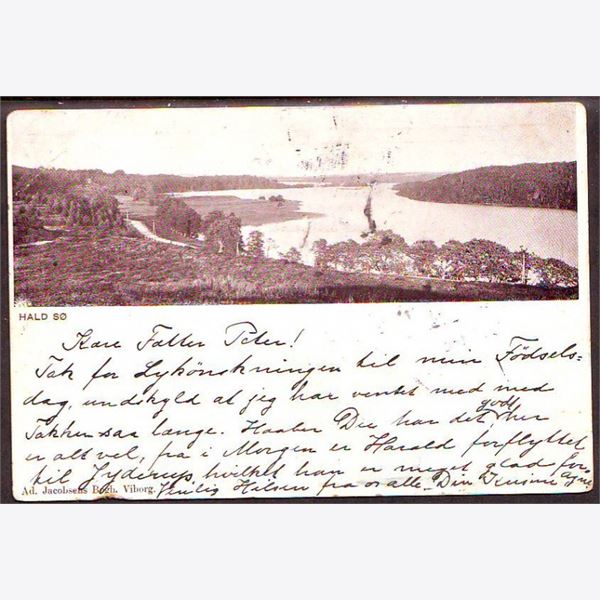 HALD SØ
Kære Fatter Peter!
Tak for Lykönskningen til min Fødsels=
dag, undskyld at jeg har ventet med med
godt
Takken saa længe. Haaber Du har det her
er alt vel, fra i Morgen er Harald forflyttet
til Jyderup, hvilket han er meget glad for
Ad. Jacobsens Bogh. Viborg. Venlig Hilsen fra os alle. Din Kusine